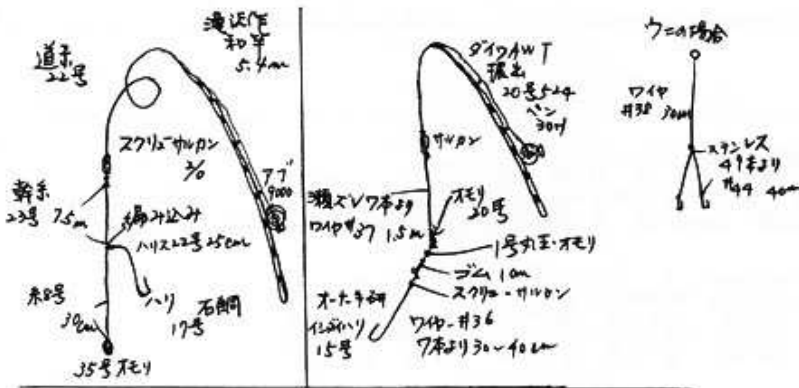 道糸
22号
滝沢作
和竿
5.4m
スクリューサルカン
2/0
アブ
9000
幹糸
23号 75m
編み込み
ハリス22号 25cm
糸8号
30cm
ハリ 石鯛
17号
35号オモリ
ダイワAWT
振出
20号524
ペン
30H
サルカン
瀬ズレ7本より
ワイヤ#37 1.5m
オモリ
20号
1号丸玉・オモリ
ゴム 1cm
スクリュー・サルカン
イシダイハリ
15号
ワイヤー#36
7本より30〜40cm
ウニの場合
ワイヤ
#38 30cm
ステンレス
49本より
#44 40cm